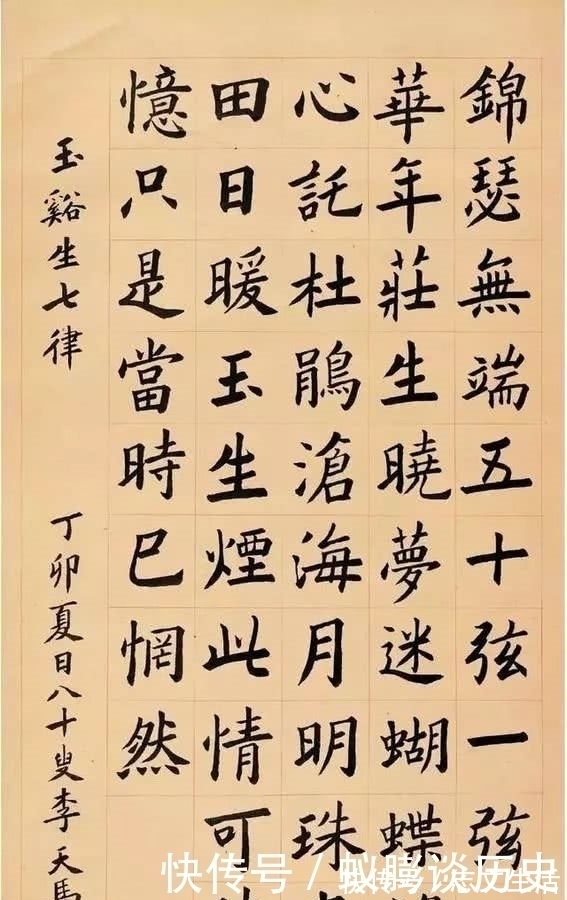 錦瑟無端五十弦一弦
華年莊生曉夢迷蝴蝶
心託杜鵑滄海月明珠
田日暖玉生煙此情可
憶只是當時已惘然
玉谿生七律
丁卯夏日八十叟李天馬
快传号 / 蚁腾谈历史